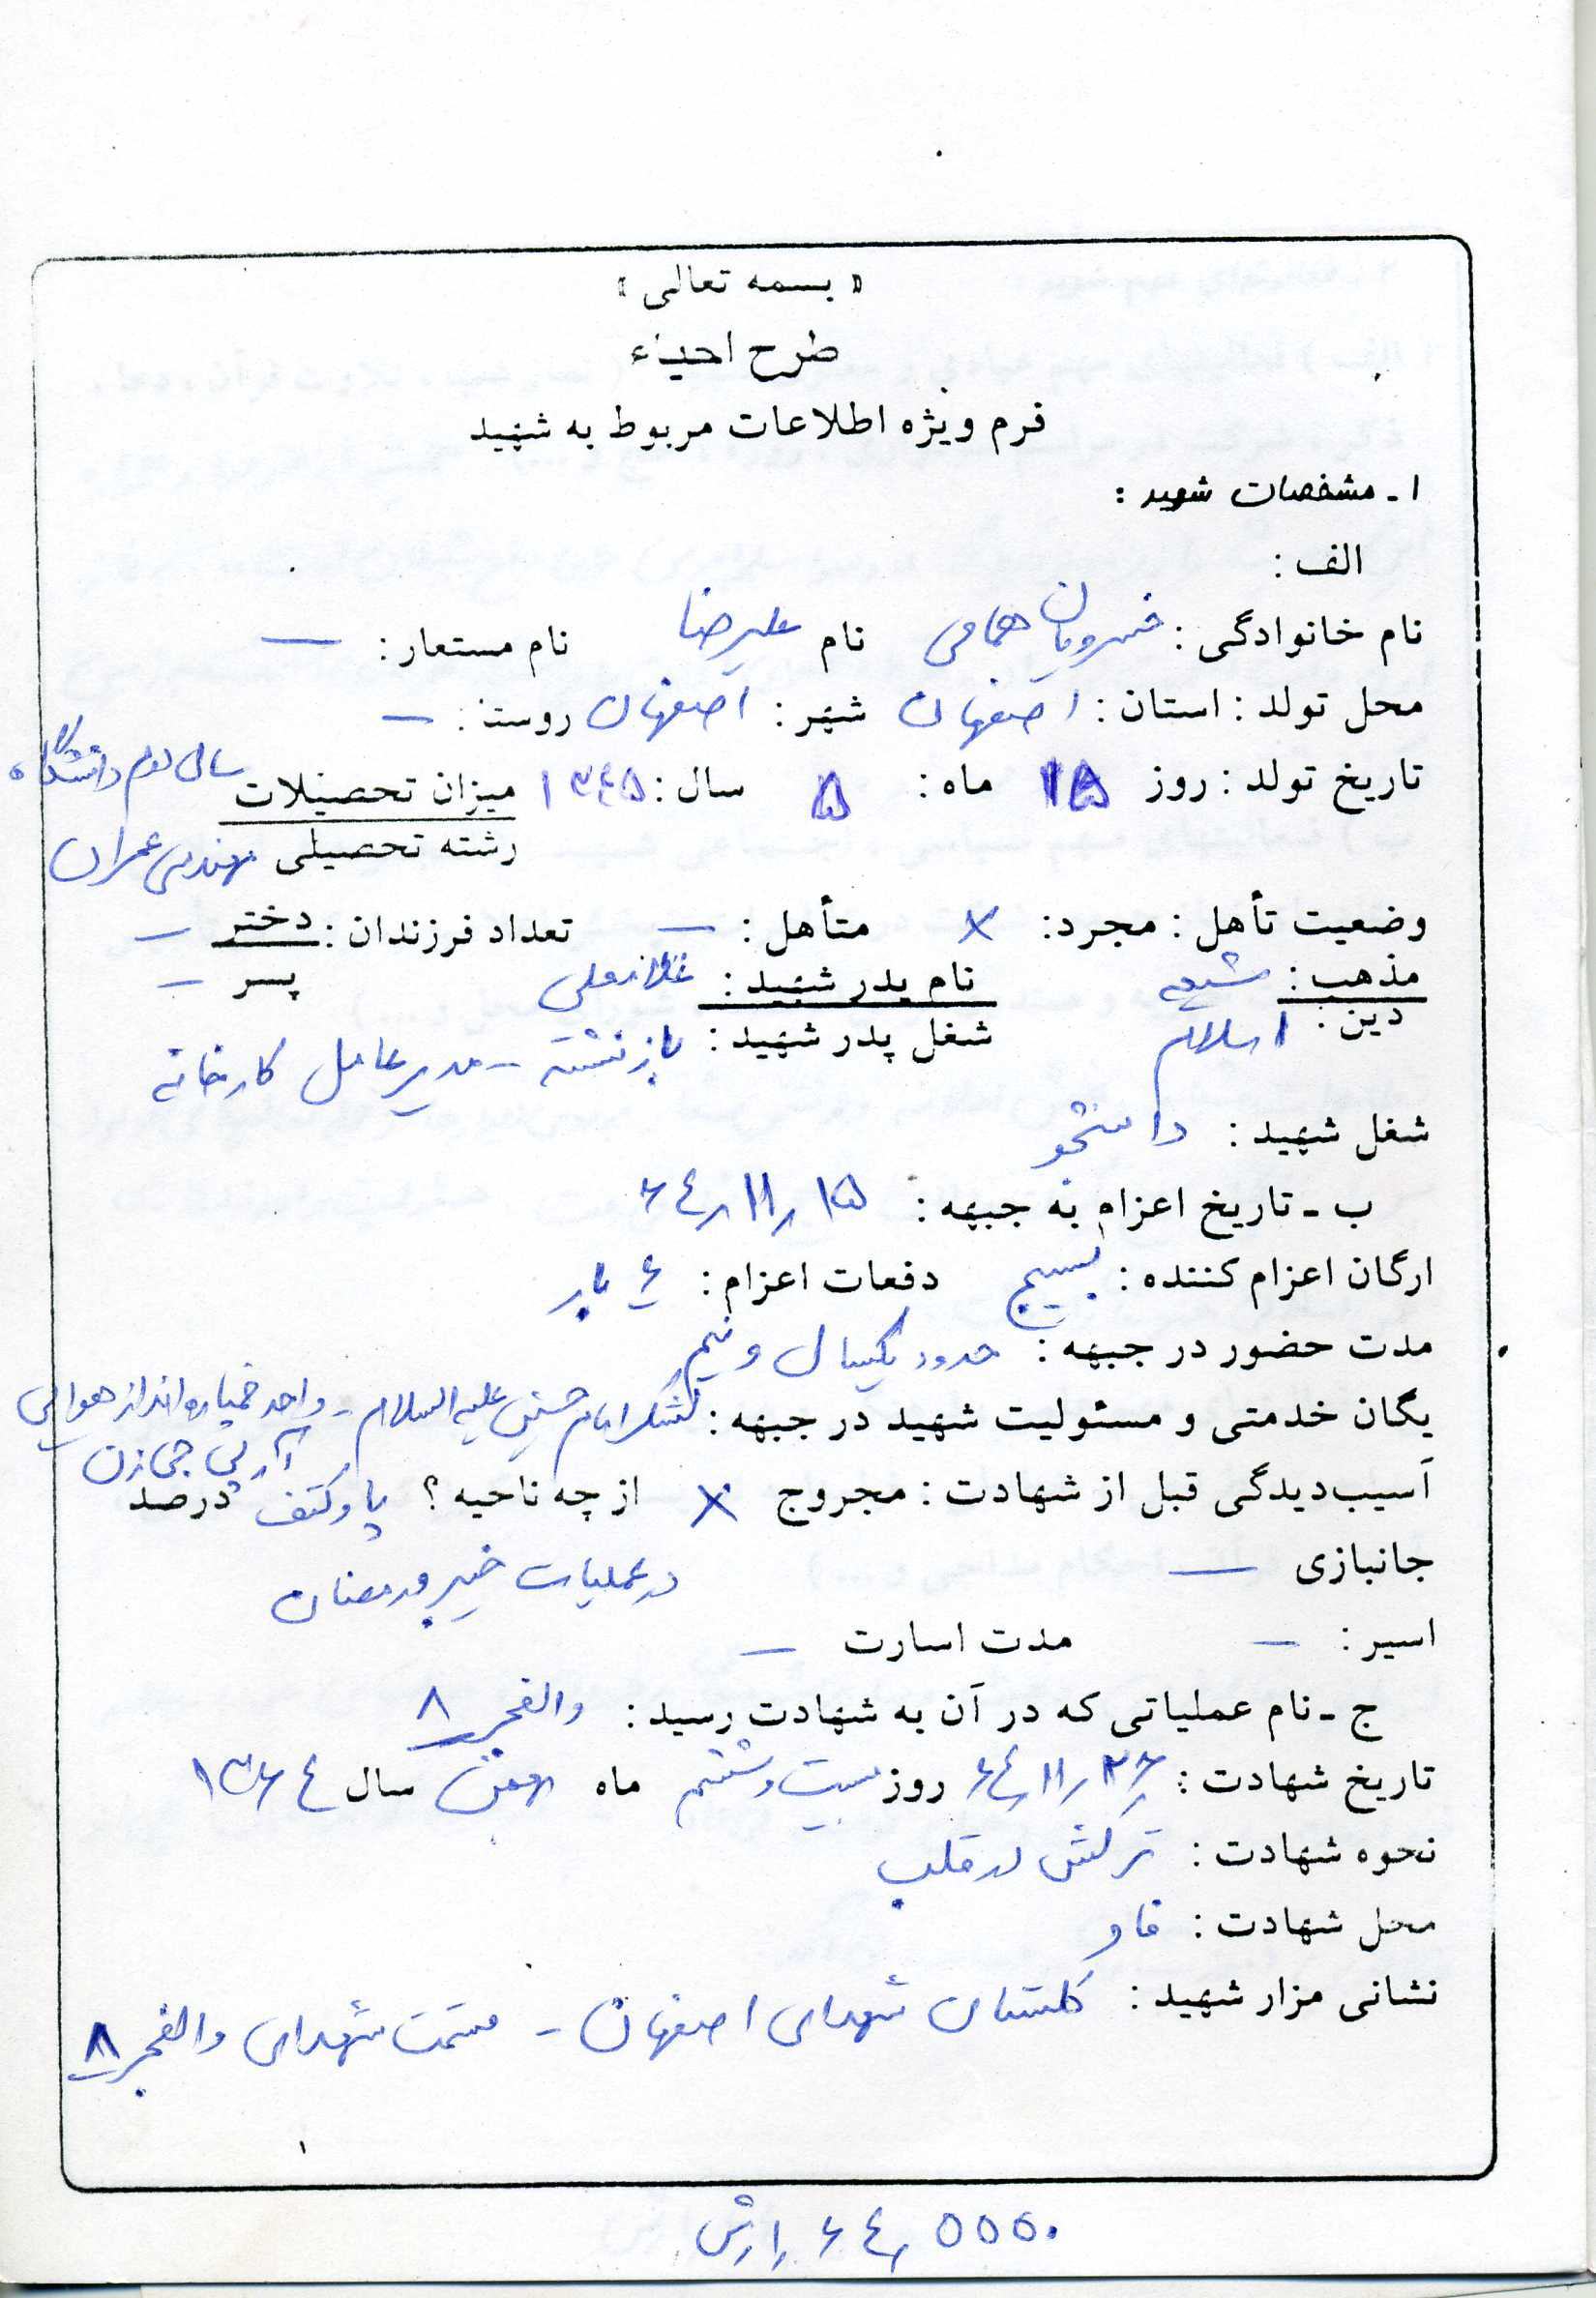 « بسمه تعالی »
طرح احیاء
فرم ویژه اطلاعات مربوط به شهید
۱ ـ مشخصات شهید :
الف :
نام خانوادگی : خسرویان همامی نام علیرضا نام مستعار : —
محل تولد : استان : اصفهان شهر : اصفهان روستا : —
تاریخ تولد : روز ۱۵ ماه : ۵ سال : ۱۳۴۵ میزان تحصیلات سال دوم دانشگاه
رشته تحصیلی مهندسی عمران
وضعیت تأهل : مجرد : × متأهل : — تعداد فرزندان : دختر —
پسر —
مذهب : شیعه نام پدر شهید : غلامعلی
دین : اسلام شغل پدر شهید : بازنشسته – مدیرعامل کارخانه
شغل شهید : دانشجو
ب ـ تاریخ اعزام به جبهه : ۶۴/۱۱/۱۵
ارگان اعزام کننده : بسیج دفعات اعزام : ۶ بار
مدت حضور در جبهه : حدود یکسال و نیم
یگان خدمتی و مسئولیت شهید در جبهه : لشکر امام حسین علیه السلام – واحد خمپاره انداز هوایی
آر پی جی زن
آسیب‌دیدگی قبل از شهادت : مجروح × از چه ناحیه ؟ پا و کتف درصد
جانبازی — در عملیات خیبر و رمضان
اسیر : — مدت اسارت —
ج ـ نام عملیاتی که در آن به شهادت رسید : والفجر ۸
تاریخ شهادت : ۶۴/۱۱/۲۶ روز بیست و ششم ماه بهمن سال ۱۳۶۴
نحوه شهادت : ترکش در قلب
محل شهادت : فاو
نشانی مزار شهید : گلستان شهدای اصفهان – قسمت شهدای والفجر ۸
۱